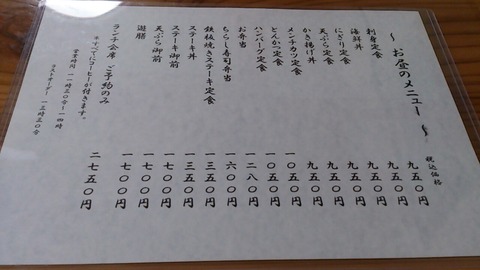 〜お昼のメニュー〜
税込価格
刺身定食 九五〇円
海鮮丼 九五〇円
にぎり定食 九五〇円
天ぷら定食 九五〇円
かき揚げ丼 九五〇円
メンチカツ定食 九五〇円
とんかつ定食 一〇五〇円
ハンバーグ定食 一〇五〇円
お弁当 一二八〇円
ちらし寿司弁当 一六〇〇円
鉄板焼きステーキ定食 一三五〇円
ステーキ丼 一三五〇円
ステーキ御前 一七〇〇円
天ぷら御前 一七〇〇円
遊膳 一七〇〇円
ランチ会席・ご予約のみ 二七五〇円
＊すべてにコーヒーが付きます。
営業時間 一一時三〇分〜一四時
ラストオーダー 一三時三〇分